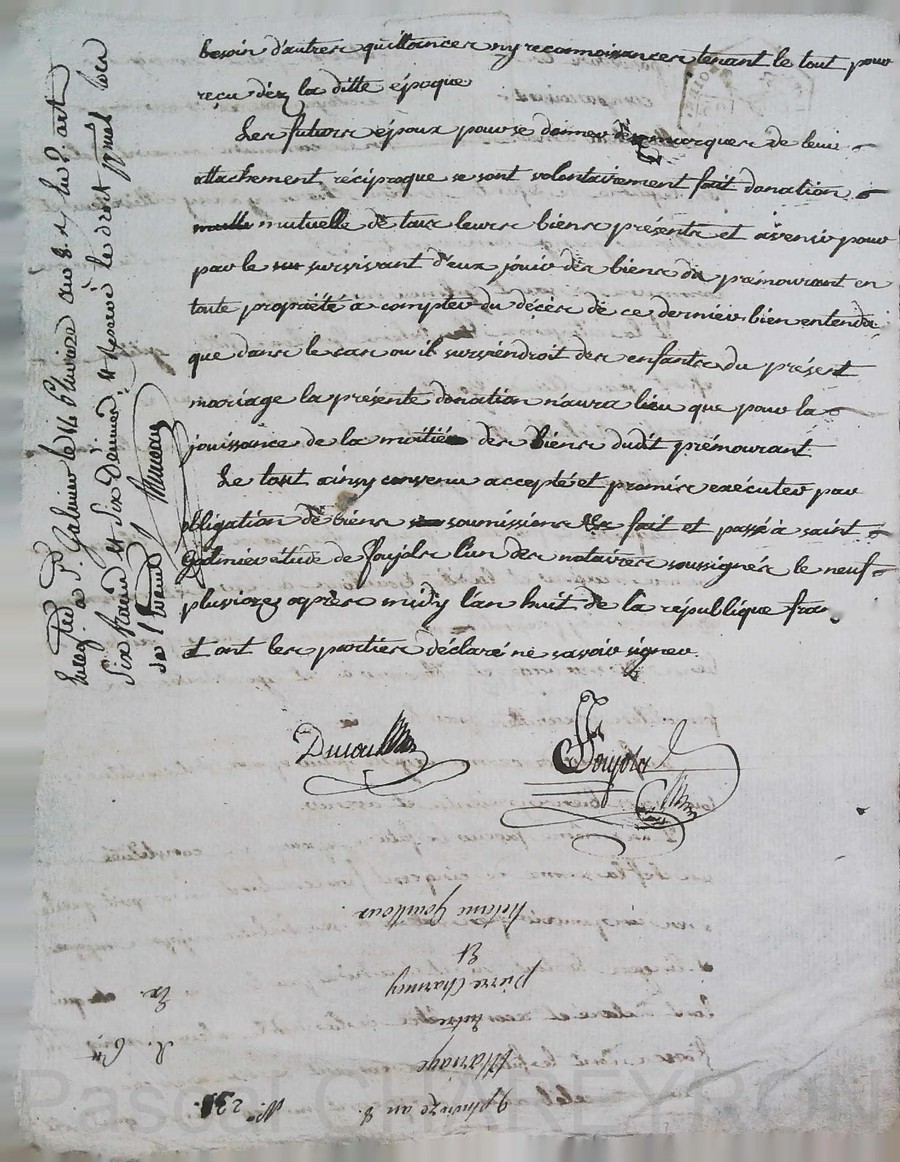 besoin d'autres quittances ny reconnoissances tenant le tout pour
reçu dèz la ditte époque
Les futurs époux pour se donner des marques de leur
attachement réciproque se sont volontairement fait donation
mutuelle de tous leurs biens présents et avenir pour
par le survivant d'eux jouir des biens du prémourant en
toute propriété à compter du décès de ce dernier bien entendu
que dans le cas ou il surviendroit des enfants du présent
mariage la présente donation n'aura lieu que pour la
jouissance de la moitié des biens dudit prémourant
Le tout ainsy convenu accepté et promis exécuter par
obligation de biens soumissions fait et passé à saint
Galmier étude de Joujols l'un des notaires soussignés le neuf
pluviose après midy l'an huit de la république fra
et ont les parties déclaré ne savoir signer.
Joujols
Enreg. à St. Galmier le 14 Pluviose an 8.
Six francs et Six Denier et Reservé le droit
9 pluvioze an 8. N.° 231
Mariage
Entre
pierre Charmey
Et